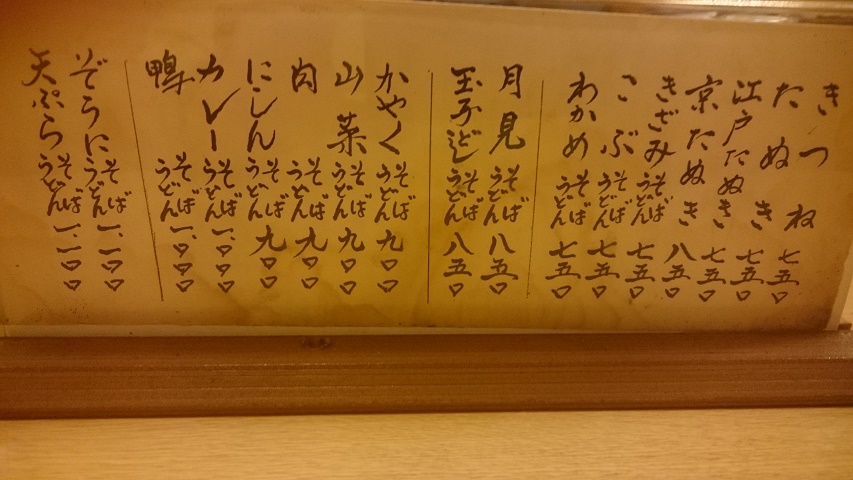 きつね 七五〇
たぬき 七五〇
江戸たぬき 七五〇
京たぬき 八〇〇
きざみ そばうどん 七五〇
こぶ そばうどん 七五〇
わかめ そばうどん 七五〇
月見 そばうどん 八五〇
玉子とじ そばうどん 八五〇
かやく そばうどん 九〇〇
山菜 そばうどん 九〇〇
肉 そばうどん 九〇〇
にしん そばうどん 九〇〇
カレー そばうどん 一、〇〇〇
鴨 そばうどん 一、〇〇〇
ぞうに そばうどん 一、一〇〇
天ぷら そばうどん 一、一〇〇